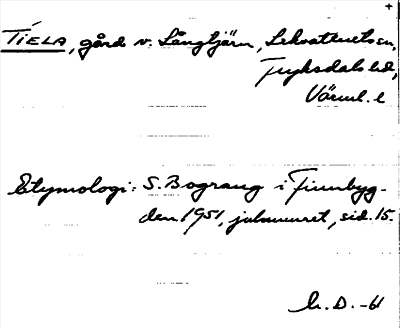 TIELA, gård v. Långtjärn, Lekvattnets sn,
Fryksdals hd,
Värml. l
Etymologi: S. Bograng i Finnbyg-
den 1951, julnumret, sid. 15.
D. -61